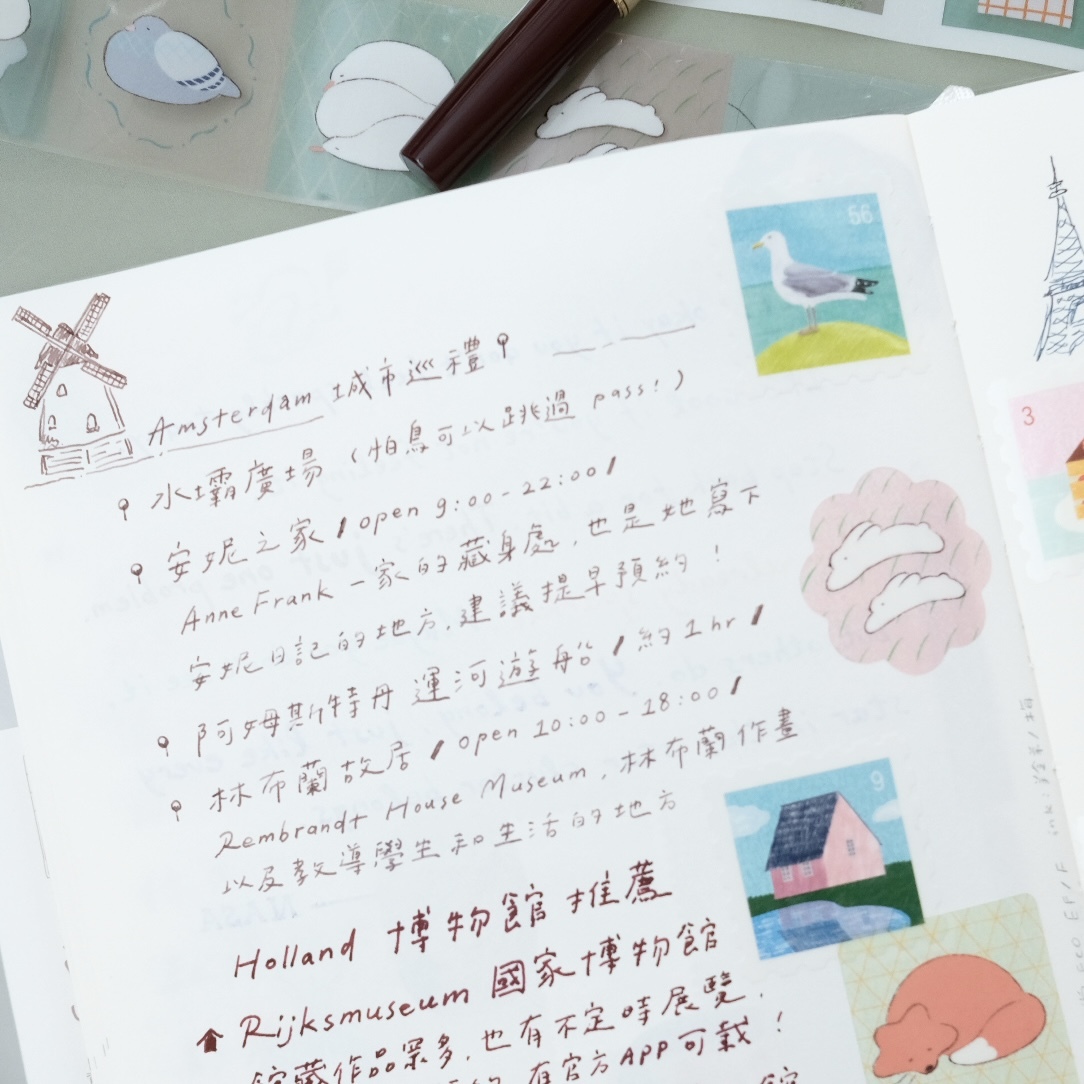 Amsterdam 城市巡禮
水壩廣場 (怕鳥可以跳過 pass!)
安妮之家 / open 9:00-22:00 /
Anne Frank 一家的藏身處,也是她寫下
安妮日記的地方,建議提早預約!
阿姆斯特丹 運河遊船 / 約1hr /
林布蘭故居 / open 10:00-18:00 /
Rembrandt House Museum,林布蘭作畫
以及教導學生和生活的地方
Holland 博物館推薦
Rijksmuseum 國家博物館
館藏作品眾多,也有不定時展覽,
有官方APP可載!
館
56
9
3